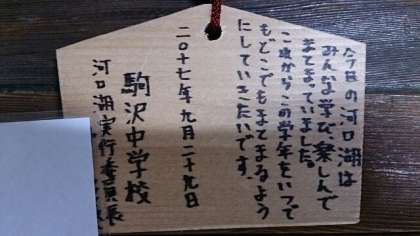 今回の河口湖は
みんな学び、楽しんで
まとまっていました。
これからこの学年をいつで
もどこでもまとまるよう
にしていきたいです。
二〇十七年九月二十九日
駒沢中学校
河口湖実行委員長